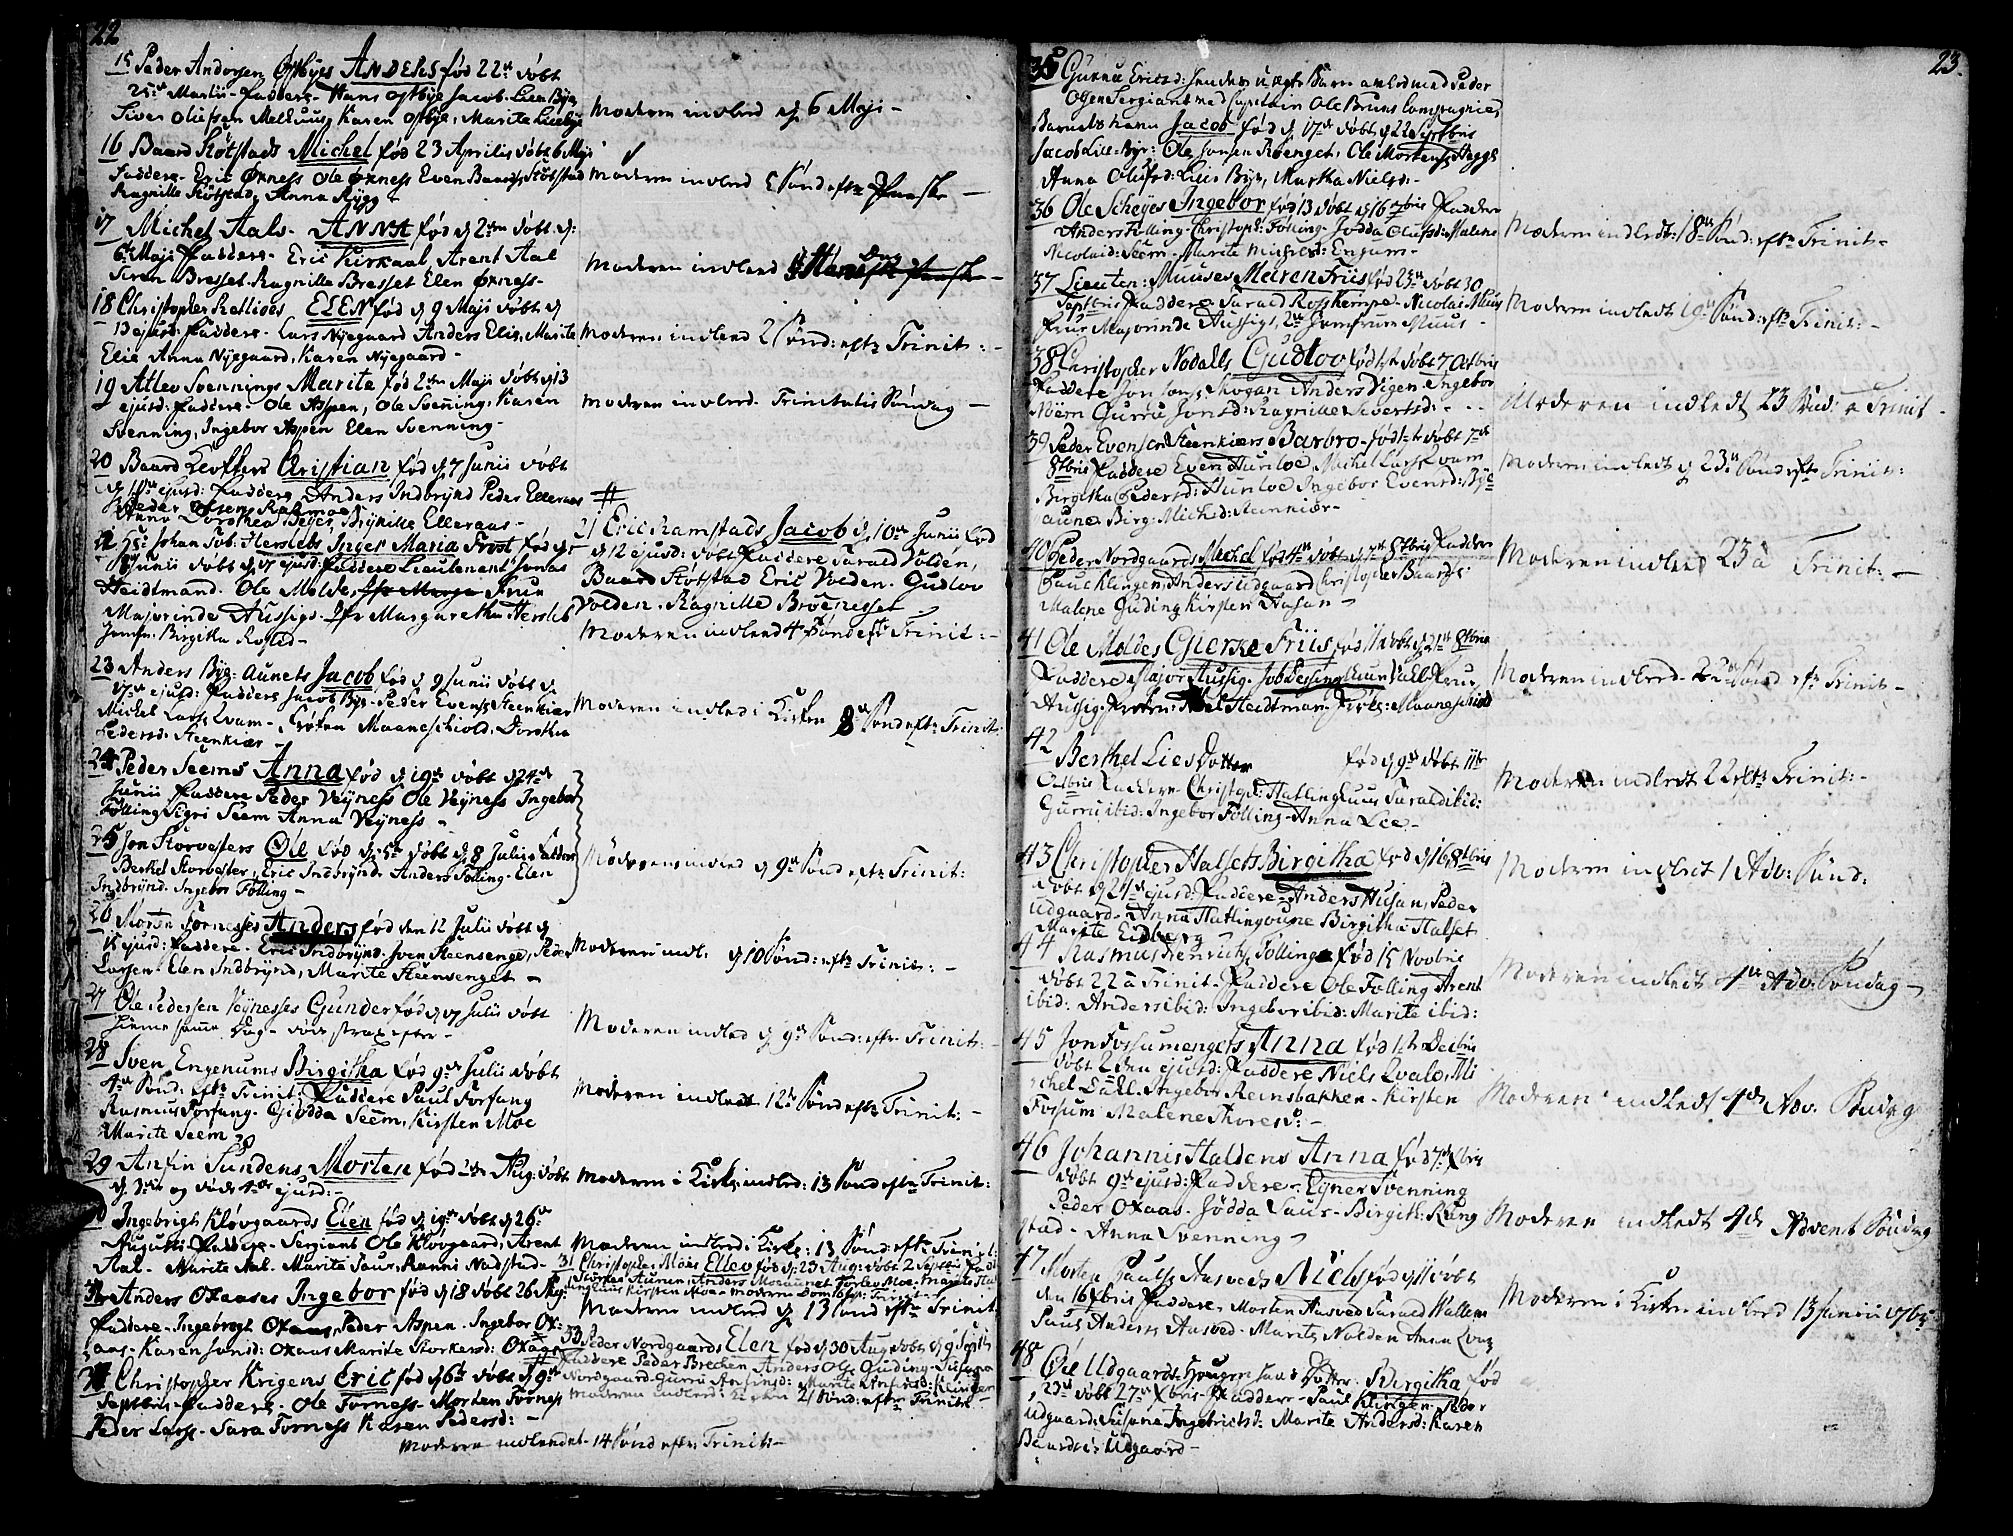 22
15 Peder Andersen Østbyes Anders fød 22de døbt
25de Martii Faddere Hans Østbye Jacob Lien Bye
Siver Olufsen Melhuus, Karen Østbye, Marite Liebye
Moderen indled d. 6 Maji
16 Baard Støtstads Michel fød 23 Aprilis døbt 6 Maji
Faddere Eric Øxness Ole Øxness Even Baards: Støtstad
Ragnille Støtstad, Anna Rygg
Moderen indled 5 Sønd efter Paaske
17 Michel Aals Anna fød d. 2den døbt d:
6te Maji Faddere Eric Kirkaal Arent Aal
Siren Bresset Ragnille Bresset Elen Øxness
Moderen indled
18 Christopher Relliges Elen fød d. 9 Maji døbt d
13 ejusd: Faddere Lars Nyegaard Anders Elie, Marite
Elie Anna Nyegaard, Karen Nyegaard
Moderen indled 2 Sønd: eft: Trinit:
19 Atlev Svennings Marite fød 2den Maji døbt d 13
ejusd: Faddere Ole Aspen, Ole Svenning, Karen
Svenning, Ingebor Aspen Elen Svenning
Moderen indled Trinitatis Søndag
20 Baard Kloffters Cristian fød d. 7 Junii døbt
d 10de ejusd: Faddere Anders Indbrynd Peder Elleraas
Peder Olsen
Anna Dorothea Beyer, Brynille Elleraas
21 Eric Ramstads Jacob d. 10de Junii fød
d 12 ejusd: døbt Faddere Tarald Volden,
Baard Støtstad Eric Volden. Gudlov
Volden. Ragnille Brøenesset
Moderen indled 4 Sønd eft Trinit:
22 Johan Herslebs Inger Maria Frost fød d 5
Junii døbt d. 17 ejusd: Faddere Lieutenant Jonas
Heidtmand. Ole Molde, Frue
Majorinde Aussigs. Margaretha Hersleb
Jomfr: Birgitha Rosted
23 Anders Bye-Aunets Jacob fød d. 9 Junii døbt d
17de ejusd: Faddere Jacob Bye. Peder Evens: Steenkier
Michel Lars: Qvam. Frøken Maaneschiold. Dorthea
Pedersd: Steenkier
Moderen indled i Kirken 8de Sønd eft: Trinit:
24 Peder Seems Anna fød d 19de døbt d 24de
Junii Faddere Peder Veyness Ole Veyness Ingebor
Følling Sigri Seem Anna Veyness
25 Jon Storvesters Ole fød d. 5te døbt d. 8 Julii Faddere
Berthel Storvester, Eric Indbrynd Anders Følling. Elen
Indbrynd. Ingebor Følling
Moderen indled d 9de Sønd eft: Trinit:
26 Forness Anders fød den 12 Julii døbt d
15 ejusd: Faddere Eric Indbrynd Sven Steensenge, Peder
Larsen. Elen Indbrynd, Marite Steensenget
Moderen indl: d 10 Sønd: eft: Trinit:
27 Ole Pedersen Veynesses Gunder fød d 17 Julii døbt
hiemme samme Dag døde strax efter
Moderen indled d 9de Sønd: eft: Trinit:
28 Sven Engenums Birgitha fød 9de Julii døbt
4de Sønd: eft: Trinit: Faddere Paul Forfang
Rasmus Forfang. Giødda Seem, Kirsten Moe
Marite Seem
Moderen indledt 12te Sønd eft: Trinit:
29 Anfin Sundens Morten fød 2den Aug: døbt
d 3die og døde 4de ejusd:
Moderen i Kirke indled: 13 Sønd eft: Trinit:
30 Ingebrigt Kløvgaards Elen fød d 19de døbt d 26de
Augusti Faddere Sergiant Ole Kløvgaard, Arent
Aal. Marite Aal. Marite Saur, Ranni Nadstad
Moderen indled i Kirke: 13 Sønd: eft: Trinit:
31 Christopher Moes Ellev fød d: 23 Aug: døbt 2 Septbr:
32 Anders Oxaases Ingebor fød d 18 døbt 26 Aug:
Faddere Ingebrigt Oxaas, Peder Aspen Ingebor Ox-
aas Karen Jonsd: Oxaas Marite Storkersd: Oxaas
Moderen indled d 13 Sønd eft Trinit
33 Peder Nordgaards Elen fød d 30 Aug døbt d 9 Septbr
Faddere Peder Brecken Anders Ols: Guding
Nordgaard Gurru Anfinsd: Marite Anfinsd: Klingen
Moderen indled: Kirken 21 Sønd: eft: Trinit:
34 Christopher Krigens Eric fød d 6te døbt d 9de
Septbris Faddere. Ole Forness Morten Forness
Peder Larss: Sara Forness Karen Pedersd:
Moderen indledet 14 Sønd eft: Trinit:
23.
35 Gurru Ericsd: hendes uægte Barn avled med Peder
Olsen Sergiant ved Capitain Ole Bruns Compagnie
Barnets Navn Jacob fød d 17de døbt d 22 Septbris
Jacob Lille-Bye: Ole Jonsen Røenget, Ole Mortens: Hegge
Anna Olufsd: Lille Bye, Martha Nielsd:
36 Ole Scheyes Ingebor fød 13 døbt d 16 7bris Faddere
Anders Følling Christoph: Følling Jødda Olufsd: Malene
Nicolaid: Seem Marite Michelsd: Engum
Moderen indledt: 18de Sønd: eft: Trinit:
37 Lieuten: Muuses Maren Friis fød 23de døbt 30
Septbris Faddere Tarald Rosskempe Nicolai Muus
Frue Majorinde Aussigs, 2de Jomfruer Muus
Moderen indledt 19de Sønd: eft: Trinit:
38 Christopher Nodalls Gudlov fød 1ste døbt 7 Octbris
Faddere Jon Jons: Skogan Anders Vigen. Ingebor
Niern Gurru Jonsd: Ragnille Sivertsd:
Moderen indledt 23 Sønd: a Trinit
39 Peder Evensen Steenkiers Barbro fød 1ste døbt 7de
8tbris Faddere Even Hunloe Michel Larss: Qvam
Birgitha Pedersd: Hunloe Ingebor Evensd: Bye
aune Birg: Michsd: Steenkier
Moderen indledt d 23de Sønd eft: Trinit:
40 Peder Nordgaards Michel fød 4de døbt d 7de 8tbris Faddere
Paul Klingen, Anders Udgaard Christopher Baards:
Malene Guding Kirsten Aasan
Moderen indled 23 a Trinit:
41 Ole Moldes Gierke Friis fød døbt d 21de 8tbris
Faddere Major Aussig. Job Dessing Frue
Aussig. Frøken Heidtman. Frøk: Maaneschiold
Moderen indled 22de Sønd eft: Trinit
42 Berthel Lies Dotter fød d 9de døbt 11te
Octbris Faddere Christoph: Hatlinghuus Tarald ibid:
Gurru ibid: Ingebor Følling Anna Lee
Moderen indledt 22 eft: Trinit:
43 Christopher Halsets Birgitha fød d 16 8tbris
døbt d 21de ejusd: Faddere Anders Aasan, Peder
Udgaard. Anna Hatlingoune Birgitha Halset
Marite Eidberg
Moderen indledt 1 Adv: Sønd:
44 Rasmus Henrichs: Følling fød 15 Novbris
døbt 22 a Trinit Faddere Ole Følling Arent
ibid: Anders ibid: Ingebor ibid: Marite ibid:
Moderen indledt 4de Adv: Søndag
45 Jon Fossumengets Anna fød 1ste Decbris
døbt 2den ejusd: Faddere Niels Qvale, Mi-
chel Dahl Ingebor Reinsbakken Kirsten
Fossum Malene Thoresd:
Moderen indledt 4de Adv. Søndag
46 Johannis Haldens Anna fød 7de Xbris
døbt 9de ejusd: Faddere: Eyner Svenning
Peder Oxaas. Jødda Saur Birgith: Rung
stad Anna Svenning
Moderen indledt 4de Advent Søndag
47 Morten Pauls: Aasveds Niels fød d 11 døbt
den 16 Xbris Faddere Morten Aasved Tarald Wallem
Paul Anders: Aasved Marite Nolden Anna
Moderen i Kirken indled 13 Junii 1765
48 Ole Udgaards Hougen hans Dotter: Birgitha fød
23de døbt 27de Xbris Faddere Paul Klingen Peder
Udgaard Susana Ingebrictsd: Marite Andersd: Karen
Baardsd: Udgaard